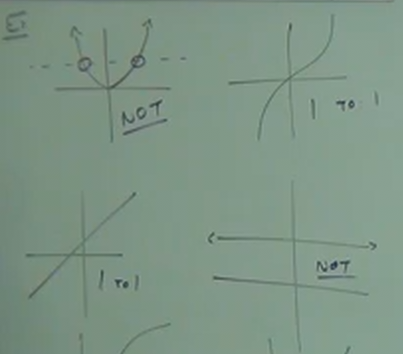 Ex
NOT
1 TO 1
1 TO 1
NOT